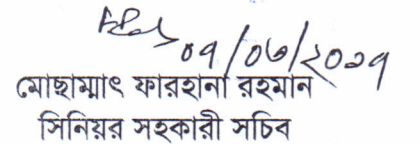 ০৭/০৬/২০১৭
মোছাম্মাৎ ফারহানা রহমান
সিনিয়র সহকারী সচিব